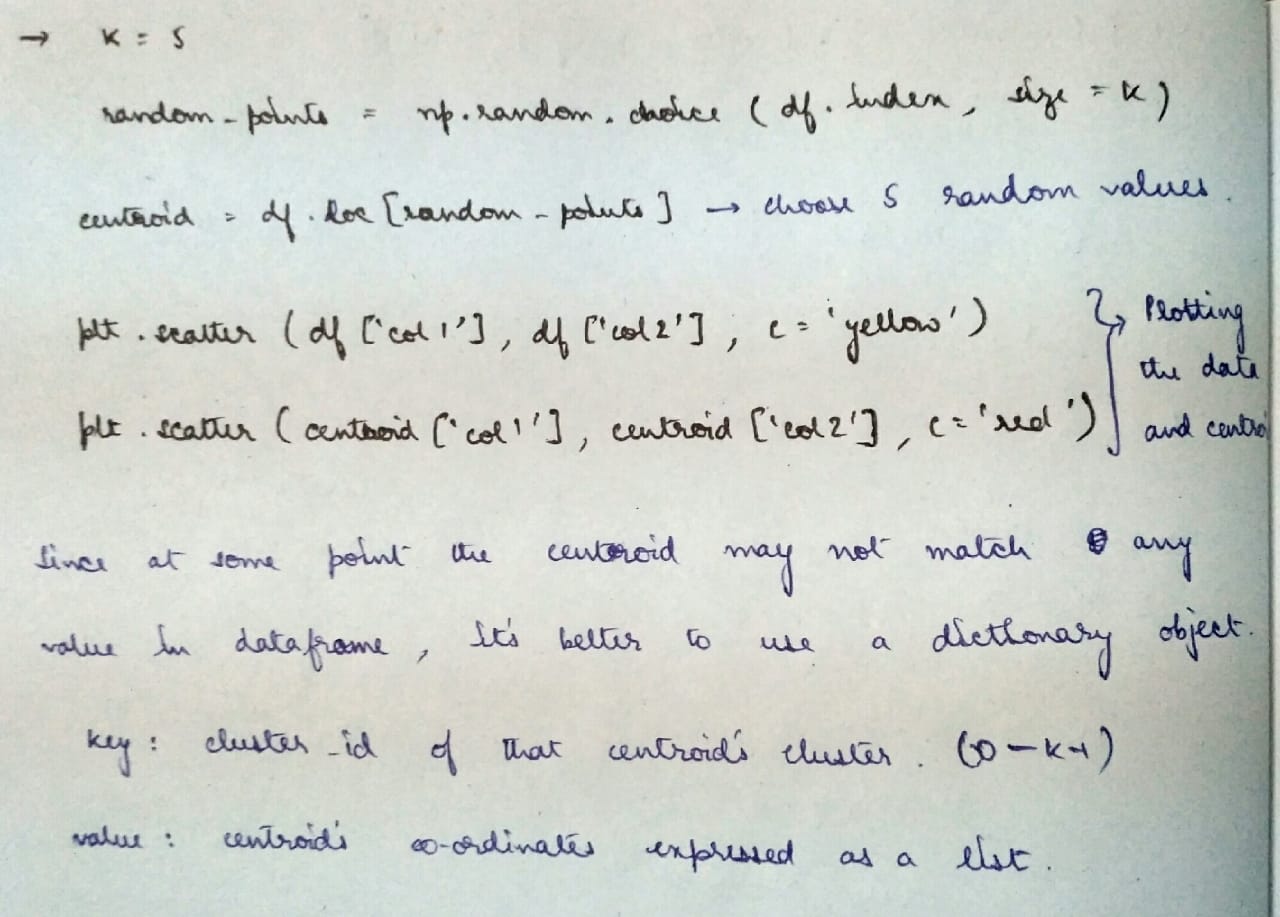 → K = 5
random_points = np.random.choice ( df.index, size = K )
centroid = df.loc [random_points] → choose 5 random values.
plt.scatter ( df ['col1'], df ['col2'], c = 'yellow' ) → Plotting
the data
plt.scatter ( centroid ['col1'], centroid ['col2'], c = 'red' ) and centro
Since at some point the centroid may not match any
value in dataframe, it's better to use a dictionary object.
key : cluster_id of that centroid's cluster. (0 - K-1)
value : centroid's co-ordinates expressed as a list.